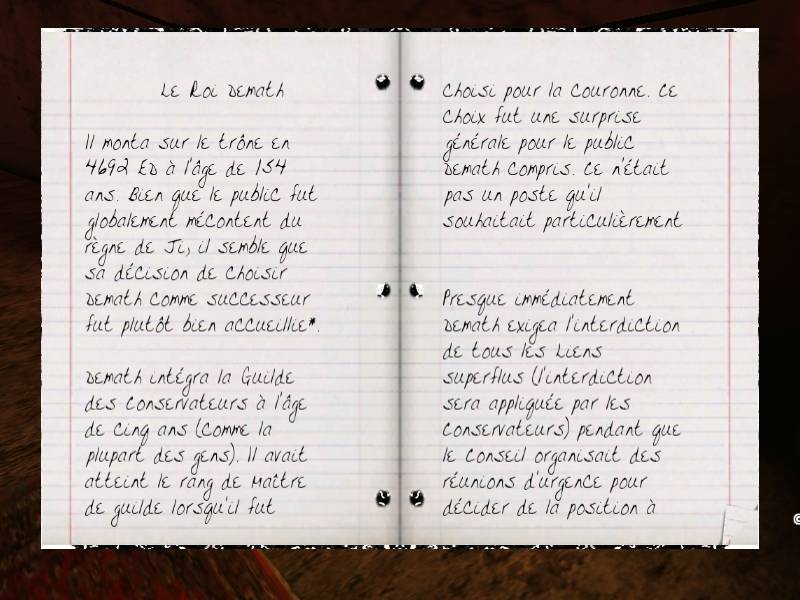 Le Roi Demath
Il monta sur le trône en
4692 ED à l'âge de 154
ans. Bien que le public fut
globalement mécontent du
règne de Ji, il semble que
sa décision de choisir
Demath comme successeur
fut plutôt bien accueillie*.
Demath intégra la Guilde
des Conservateurs à l'âge
de cinq ans (comme la
plupart des gens). Il avait
atteint le rang de Maître
de guilde lorsqu'il fut
choisi pour la couronne. Ce
choix fut une surprise
générale pour le public
Demath compris. Ce n'était
pas un poste qu'il
souhaitait particulièrement
Presque immédiatement
Demath exigea l'interdiction
de tous les Liens
superflus (l'interdiction
sera appliquée par les
Conservateurs) pendant que
le Conseil organisait des
réunions d'urgence pour
décider de la position à
©